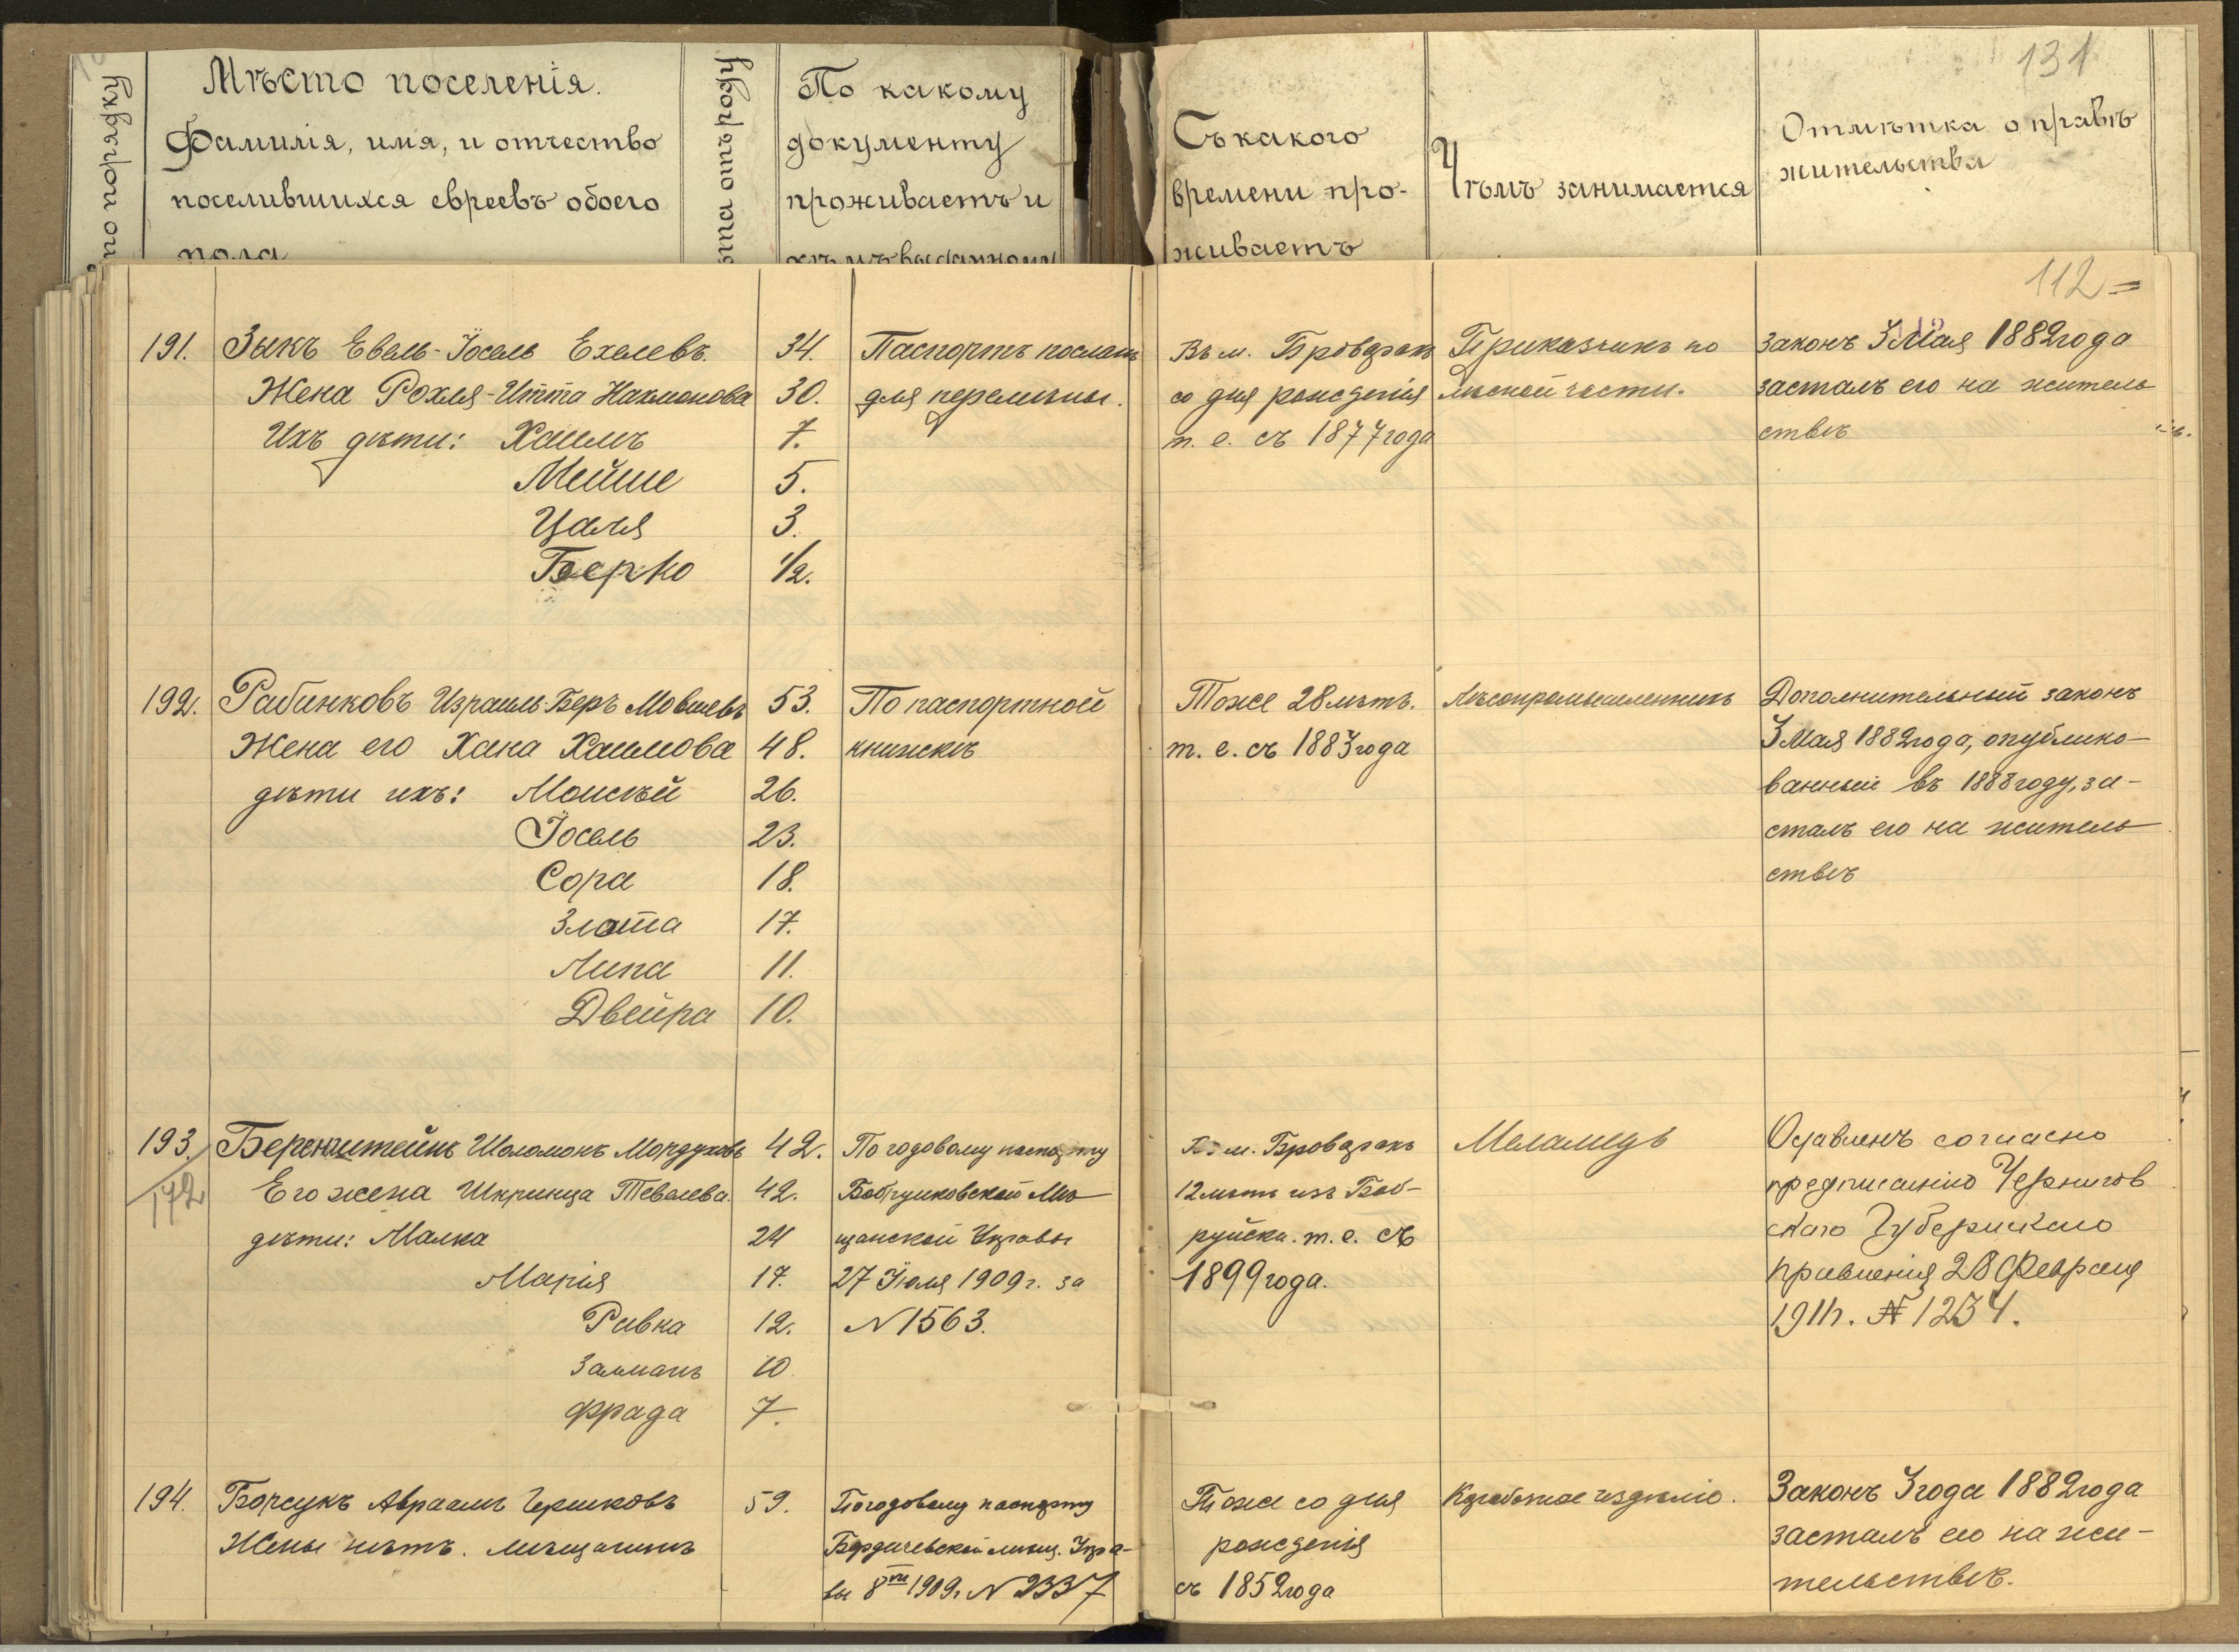 131
по порядку
Мѣсто поселенія.
Фамилія, имя, и отчество
поселившихся евреевъ обоего
пола
отъ роду
По какому
документу
проживаетъ и
кѣмъ выданному
Съ какого
времени про-
живаетъ
Чѣмъ занимается
Отмѣтка о правѣ
жительства
112=
191.
Зыкъ Евель-Іосель Ехелевъ.
34.
Жена Рохля-Итта Нахмонова
30.
Ихъ дѣти: Хаимъ
7.
Мейше
5.
Цаля
3.
Берко
1/2.
Паспортъ посланъ
для перемѣны.
Въ м. Броварахъ
со дня рожденія
т. е. съ 1877 года
Приказчикъ по
лѣсной части.
Законъ 3 Мая 1882 года
засталъ его на житель
ствѣ
192.
Рабинковъ Израиль-Беръ Мовшевъ
53.
Жена его Хана Хаимова
48.
дѣти ихъ: Моисѣй
26.
Іосель
23.
Сора
18.
Злата
17.
Липа
11.
Двейра
10.
По паспортной
книжкѣ
Тоже 28 лѣтъ.
т. е. съ 1883 года
Лѣсопромышленникъ
Дополнительный законъ
3 Мая 1882 года, опублико-
ванный въ 1888 году, за-
сталъ его на житель
ствѣ
193.
172
Беренштейнъ Шоломонъ Мордуховъ
42.
Его жена Шпринца Тевелева.
42.
дѣти: Малка
24
Марія
17.
Ривка
12.
Залманъ
10
Фрада
7.
По годовому паспорту
Мѣ
щанской Управы
27 Іюля 1909 г. за
N 1563.
Въ м. Броварахъ
12 лѣтъ изъ Боб-
руйска. т. е. съ
1899 года.
Меламедъ
Оставленъ согласно
предписанію Чернигов
скаго Губернскаго
правленія 28 Февраля
1911 г. № 1234.
194.
Борсукъ Авраамъ Гершковъ
59.
Жены нѣтъ. мѣщанинъ
По годовому паспорту
Бердичевской мѣщ. Упра-
вы 1909 г. N 2337
Тоже со дня
рожденія
съ 1852 года
Законъ 3 года 1882 года
засталъ его на жи-
тельствѣ.